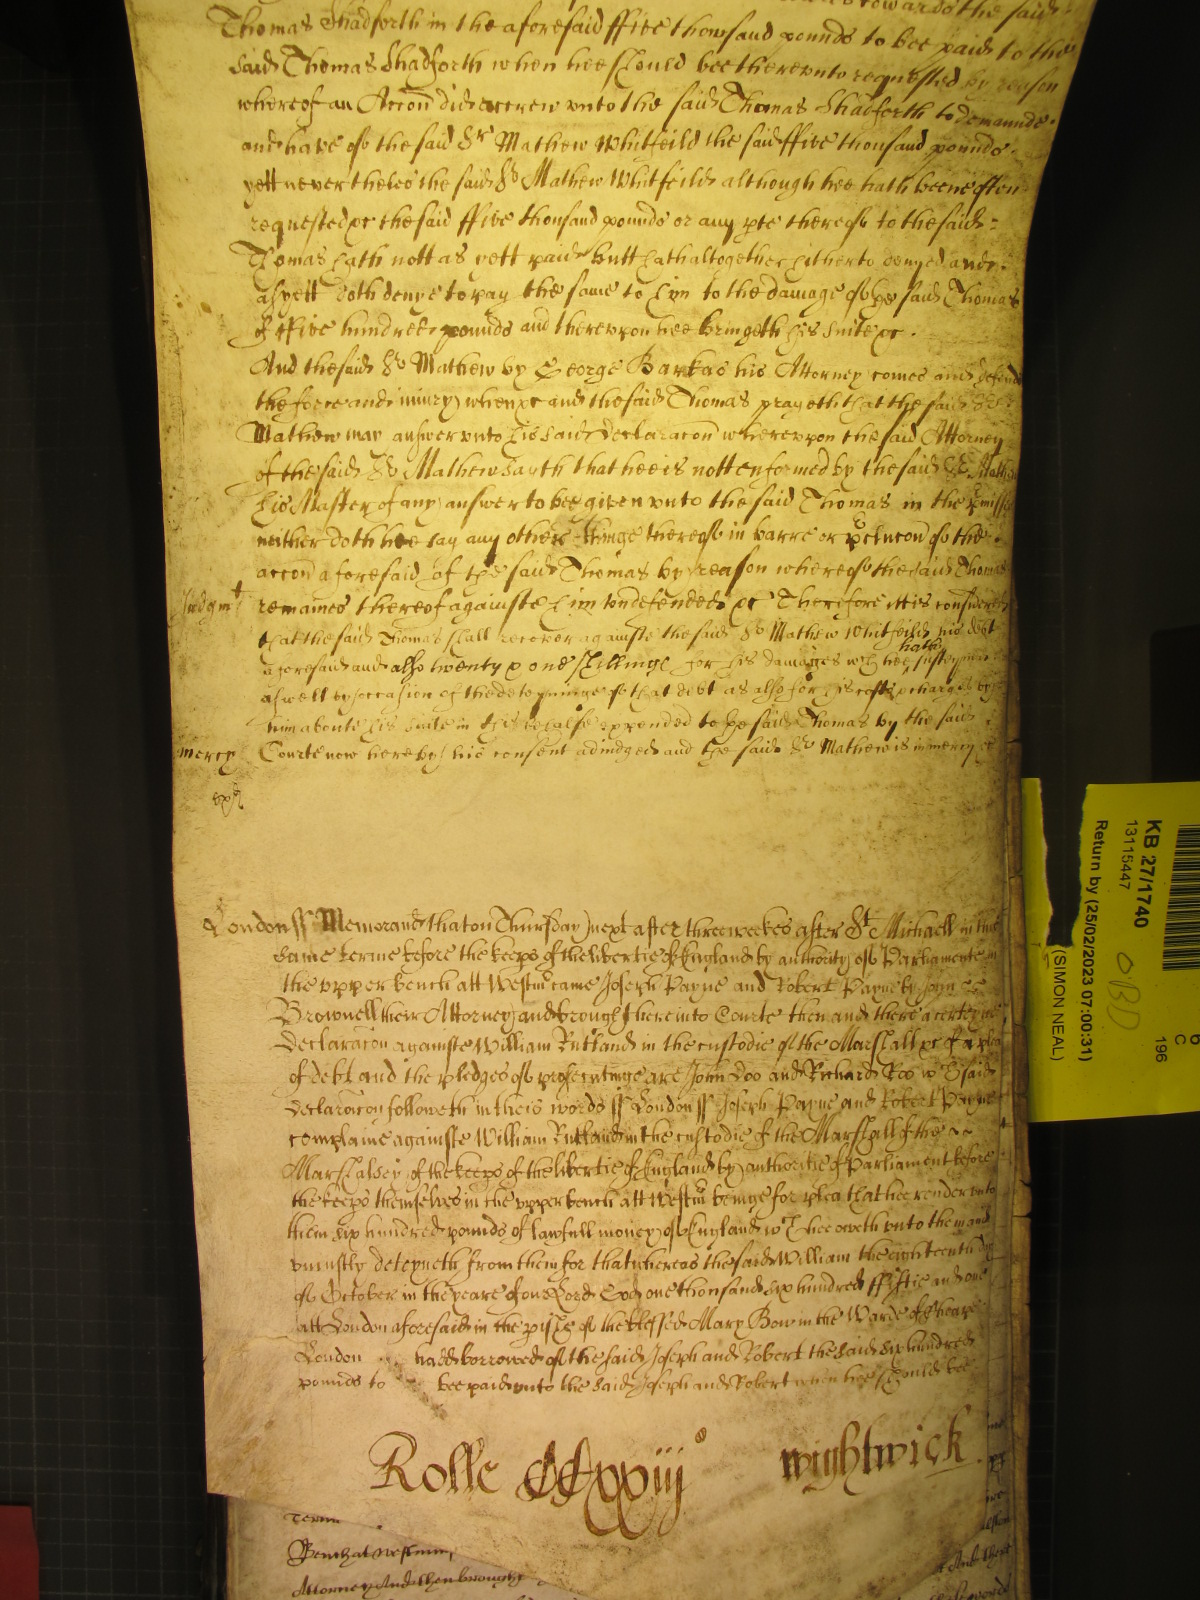 towards the said
Thomas Shadforth in the aforesaid ffive thousand pounds to bee paid to the
said Thomas Shadforth when hee should bee therevnto requested by reason
whereof an Accon did accrew vnto the said Thomas Shadforth to demaunde
and have of the said Sr Mathew Whitfeild the said ffive thousand pounds
yett nevertheles the said Sr Mathew Whitfeild although hee hath beene often
requested &c the said ffive thousand pounds or any pte thereof to the said
Thomas hath nott as yett paid butt hath altogether hitherto denyed and
as yett doth denye to pay the same to him to the damage of the said Thomas
of ffive hundred pounds and therevpon hee bringeth his suite &c.
And the said Sr Mathew by George Barkas his Attorney comes and defends
the force and iniury when &c and the said Thomas prayeth that the said Sr
Mathew may answer vnto his said declaracon wherevpon the said Attorney
of the said Sr Mathew sayth that hee is nott enformed by the said Sr Mathew
his Master of any answer to bee given vnto the said Thomas in the pmisses
neither doth hee say any other thinge thereof in barre or pclucon of the
accon aforesaid of the said Thomas by reason whereof the said Thomas
Iudgmt remaines thereof againste him vndefended &c Therefore itt is considered
that the said Thomas shall recover againste the said Sr Mathew Whitfeild his debt
aforesaid and also twenty & one shillinge for his damages wch hee hath susteyned
aswell by occasion of the deteyninge of that debt as also for his costs & charges by
him aboute his suite in this behalfe expended to the said Thomas by the said
mercy Courte now here by his consent adiudged and the said Sr Mathew is in mercy &c
London ss Memorand that on Thursday next after three weekes after St Michaell in this
same terme before the keeps of the libertie of England by authority of Parliamente in
the vpper bench att Westm came Joseph Payne and Robert Payne by John
Brownell their Attorney and brought here into Courte then and there a certeyne
declaracon againste William Rutland in the custodie of the Marshall &c of a plea
of debt and the pledges of prosecutinge are John Doo and Richard Roo wch said
declaracon followeth in theis words ss London ss Joseph Payne and Robert Payne
complaine againste William Rutland in the custodie of the Marshall of the
Marshalsey of the keeps of the libertie of England by authoritie of Parliament before
the keeps themselves in the vpper bench att Westm beinge for plea that hee render vnto
them six hundred pounds of lawfull money of England wch hee oweth vnto them and
vniustly deteyneth from them for that whereas the said William the eighteenth day
of October in the yeare of our Lord God one thousand six hundred ffiftie and one
att London aforesaid in the pish of the blessed Mary Bow in the Warde of Cheape
London hadd borrowed of the said Joseph and Robert the said six hundred
pounds to bee paid vnto the said Joseph and Robert when hee should bee
Rolle CCxxiij wightwick
Terme
Bench at Westmin
Attorney And then brought
KB 27/1740
13115447
Return by (25/02/2023 07:00:31)
(SIMON NEAL)
196
C
6